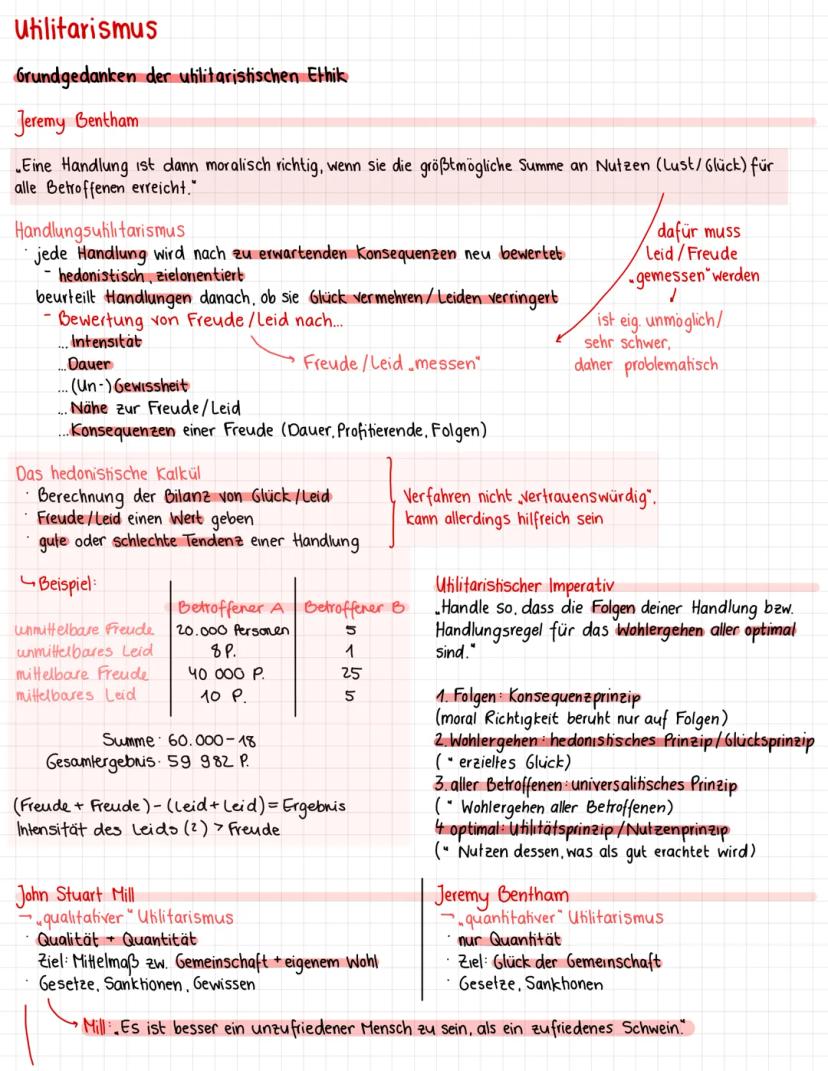 Utilitarismus
Grundgedanken der utilitaristischen Ethik
Jeremy Bentham
„Eine Handlung ist dann moralisch richtig, wenn sie die größtmögliche Summe an Nutzen (Lust/Glück) für
alle Betroffenen erreicht."
Handlungsutilitarismus
· jede Handlung wird nach zu erwartenden Konsequenzen neu bewertet
- hedonistisch, zielorientiert
beurteilt Handlungen danach, ob sie Glück vermehren/Leiden verringert
- Bewertung von Freude/Leid nach...
... Intensität
... Dauer
... (Un-)Gewissheit
... Nähe zur Freude/Leid
... Konsequenzen einer Freude (Dauer, Profitierende, Folgen)
→ Freude/Leid „messen"
dafür muss
Leid/Freude
„gemessen" werden
ist eig. unmöglich/
sehr schwer,
daher problematisch
Das hedonistische Kalkül
· Berechnung der Bilanz von Glück/Leid
· Freude/Leid einen Wert geben
· gute oder schlechte Tendenz einer Handlung
Verfahren nicht „vertrauenswürdig",
kann allerdings hilfreich sein
↳ Beispiel:
Betroffener A Betroffener B
unmittelbare Freude 20.000 Personen 5
unmittelbares Leid 8 P. 1
mittelbare Freude 40 000 P. 25
mittelbares Leid 10 P. 5
Summe: 60.000-18
Gesamtergebnis: 59 982 P.
(Freude + Freude) - (Leid + Leid) = Ergebnis
Intensität des Leids (2) > Freude
Utilitaristischer Imperativ
„Handle so, dass die Folgen deiner Handlung bzw.
Handlungsregel für das Wohlergehen aller optimal
sind."
1. Folgen: Konsequenzprinzip
(moral Richtigkeit beruht nur auf Folgen)
2. Wohlergehen: hedonistisches Prinzip/Glücksprinzip
(" erzieltes Glück)
3. aller Betroffenen: universalitisches Prinzip
(" Wohlergehen aller Betroffenen)
4. optimal: Utilitätsprinzip/Nutzenprinzip
(" Nutzen dessen, was als gut erachtet wird)
John Stuart Mill
→ „qualitativer" Utilitarismus
· Qualität + Quantität
Ziel: Mittelmaß zw. Gemeinschaft + eigenem Wohl
· Gesetze, Sanktionen, Gewissen
Jeremy Bentham
→ „quantitativer" Utilitarismus
· nur Quantität
· Ziel: Glück der Gemeinschaft
· Gesetze, Sanktionen
Mill: „Es ist besser ein unzufriedener Mensch zu sein, als ein zufriedenes Schwein."